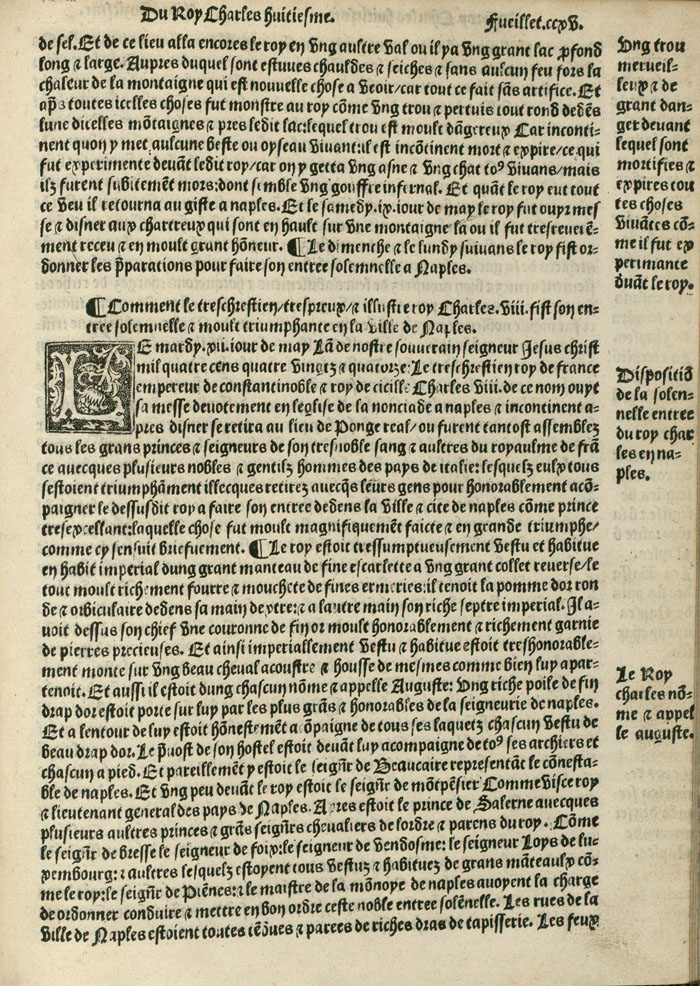 Du Roy Charles huitiesme.
Fueillet.ccxv.
de sel. Et de ce lieu alla encores le roy en vng aultre val ou il ya vng grant lac ꝓfond
long ⁊ large. Aupres duquel sont estuues chauldes ⁊ seiches ⁊ sans aulcun feu fors la
chaleur de la montaigne qui est nouuelle chose a veoir/car tout ce fait sãs artifice. Et
apꝭs toutes icelles choses fut monstre au roy cõme vng trou ⁊ pertuis tout rond dedẽs
lune dicelles mõtaignes ⁊ pres ledit lac:lequel trou est moult dãgereux Car inconti-
nent quon y met aulcune beste ou oyseau viuant:il est incõtinent mort ⁊ expire/ce qui
fut experimente deuãt ledit roy/car on y getta vng asne ⁊ vng chat toꝰ viuans/mais
ilz furent subitemẽt mors:dont semble vng gouffre infernal. Et quãt le roy eut tout
ce veu il retourna au giste a naples. Et le samedy.ix.iour de may le roy fut ouyr mes
se ⁊ disner aux chartreux qui sont en hault sur vne montaigne la ou il fut tresreuerẽ-
ment receu ⁊ en moult grant hõneur. ¶Le dimenche ⁊ le lundy suiuans le roy fist or-
donner les p̃parations pour faire son entree solemnelle a Naples.
¶Comment le treschrestien/trespreux/⁊ illustre roy Charles.viii.fist son en-
tree solemnelle ⁊ moult triumphante en la ville de Naples.
LE mardy.xii.iour de may Lã de nostre souuerain seigneur Jesus christ
mil quatre cens quatre vingtz ⁊ quatorze:Le treschrestien roy de france
empereur de constantinoble ⁊ roy de cicille Charles viii.de ce nom ouyt
sa messe deuotement en leglise de la nonciade a naples ⁊ incontinent a-
pres disner se retira au lieu de Ponge real/ou furent tantost assemblez
tous les grans princes ⁊ seigneurs de son tresnoble sang ⁊ aultres du royaulme de frã
ce auecques plusieurs nobles ⁊ gentilz hommes des pays de italie:lesquelz eulx tous
sestoient triumphãment illecques retirez auecq̃s leurs gens pour honorablement acõ-
paigner le dessusdit roy a faire son entree dedens la ville ⁊ cite de naples cõme prince
tresexcellant:laquelle chose fut moult magnifiquemẽt faicte ⁊ en grande triumphe/
comme cy sensuit briefuement. ¶Le roy estoit tressumptueusement vestu et habitue
en habit imperial dung grant manteau de fine escarlette a vng grant collet reuerse/le
tout moult richement fourre ⁊ mouchete de fines ermeries:il tenoit la pomme dor ron
de ⁊ orbiculaire dedens sa main dextre:⁊ a lautre main son riche septre imperial. Il a-
uoit dessus son chief vne couronne de fin or moult honorablement ⁊ richement garnie
de pierres precieuses. Et ainsi imperiallement vestu ⁊ habitue estoit treshonorable-
ment monte sur vng beau cheual acoustre ⁊ housse de mesmes comme bien luy apar-
tenoit. Et aussi il estoit dung chascun nõme ⁊ appelle Auguste: vng riche poile de fin
drap dor estoit porte sur luy par les plus grãs ⁊ honorables de la seigneurie de naples.
Et a lentour de luy estoit hõnestemẽt acõpaigne de tous ses laquetz chascun vestu de
beau drap dor. Le p̃uost de son hostel estoit deuãt luy acompaigne de toꝰ ses archiers et
chascun a pied. Et pareillemẽt y estoit le seignr̃ de Beaucaire representãt le cõnesta-
ble de naples. Et vng peu deuãt le roy estoit le seignr̃ de mõtpẽsier Comme visce roy
⁊ lieutenant general des pays de Naples. Apres estoit le prince de Salerne auecques
plusieurs aultres princes ⁊ grãs seignr̃s cheualiers de lordre ⁊ parens du roy. Cõme
le seignr̃ de bresse le seigneur de foix:le seigneur de vendosme: le seigneur Loys de lu-
xembourg: ⁊ aultres lesquelz estoyent tous vestuz ⁊ habituez de grans mãteaulx cõ-
me le roy:le seignr̃ de Piẽnes:⁊ le maistre de la mõnoye de naples auoyent la charge
de ordonner conduire ⁊ mettre en bon ordre ceste noble entree solẽnelle. Les rues de la
ville de Naples estoient toutes tẽdues ⁊ parees de riches dras de tapisserie. Les feux
vng trou
merueil-
leux ⁊ de
grant dan-
ger deuant
lequel sont
mortifies ⁊
expires tou
tes choses
viuãtes cõ-
me il fut ex
perimante
deuãt le roy.
Dispositiõ
de la solen-
nelle entree
du roy char
les en na-
ples.
Le Roy
charles nõ-
me ⁊ appel
le auguste.